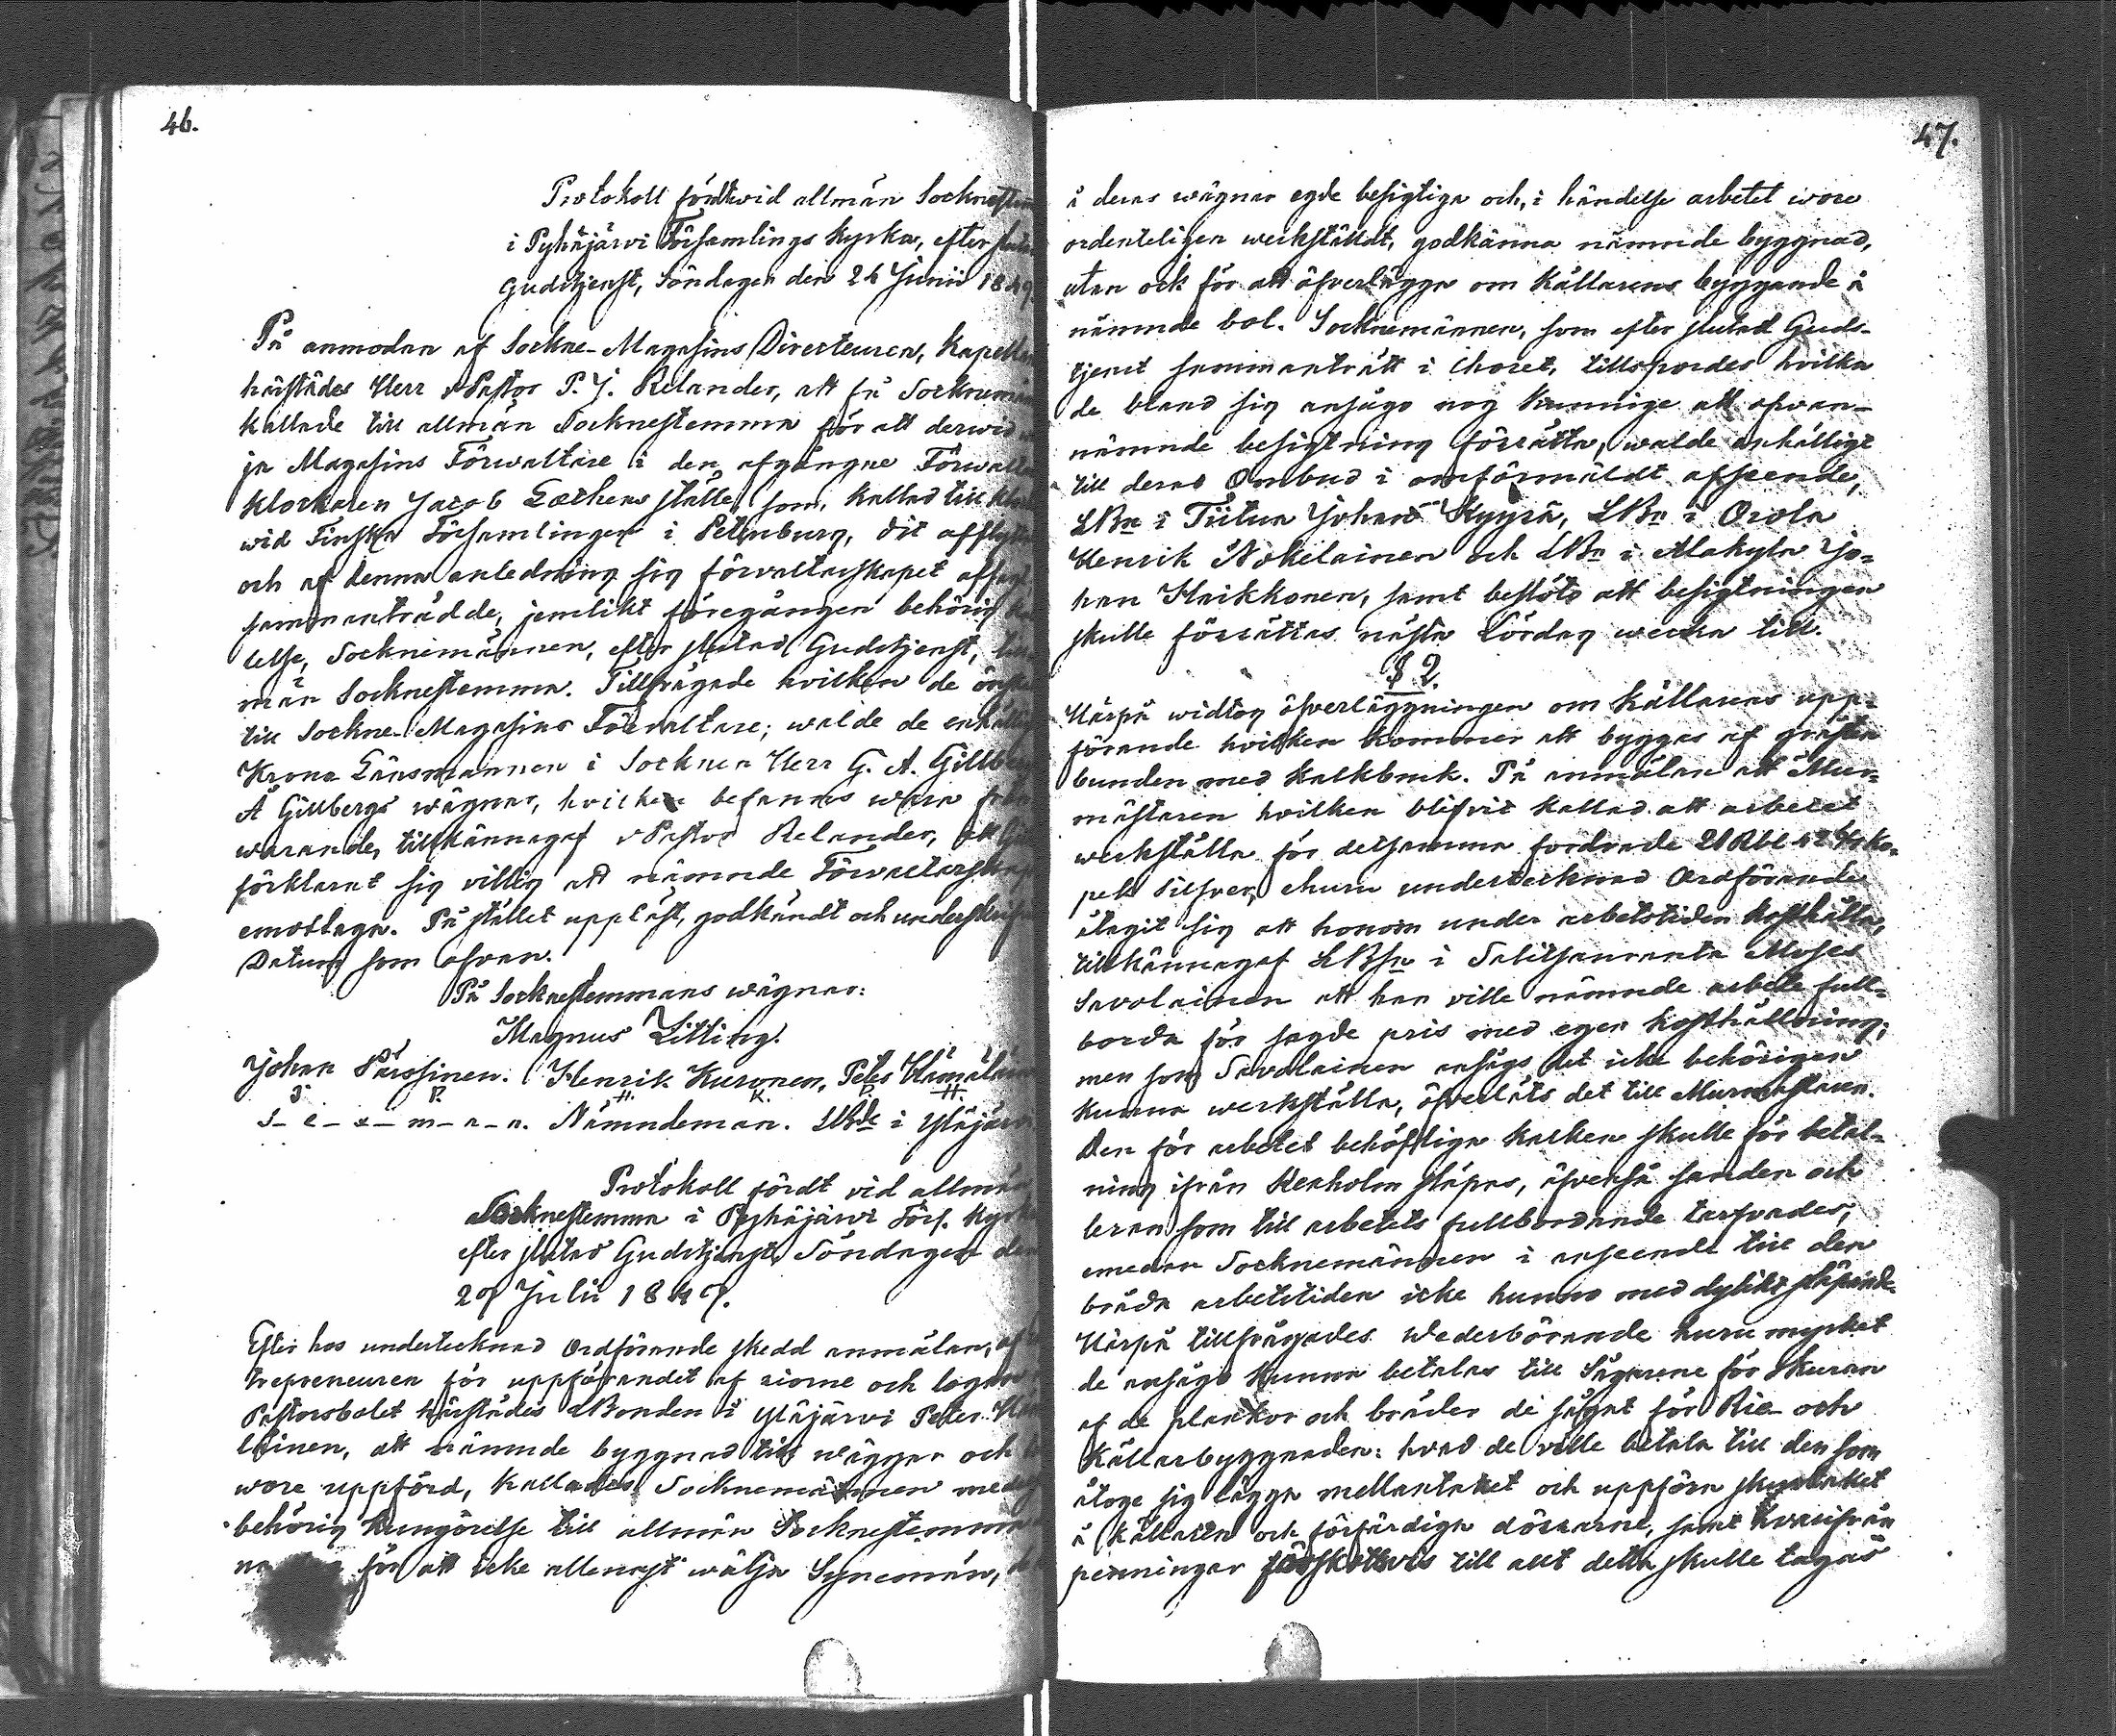 46.
Protokoll fördt wid allmän Sockneste
i Pyhäjärvi Församlings Kyrka, efter
Gudstjenst, Söndagen den 24 Junii 1849
På anmodan af Sockne-Magasins Directeuren, Kapell
härstädes Herr vPastor P. J. Relander, att få Socknemän
kallade till allmän Socknestemma för att derwid
ja Magasins Förwaltare i den afgångne Förwalta
Klockaren Jacob Lothens ställe, som, kallad till
wid Finska Församlingen i Petersburg, dit afflytt
och af denna anledning sig förvaltarskapet afsagt
sammanträdde, jemlikt föregången behörig
else, Socknemännen, efter slutad Gudstjenst,
män Socknestemma. Tillfrågade hvilken de önska
till Sockne-Magasins Förvaltare; walde de enhällig
Krono Länsmannen i Socknen Herr G. A. Gillberg
Å Gillbergs wägnar, hvilken befanns wara från
warande, tillkännagaf vPastor Relander, att
förklarat sig villig att nämnde Förvaltarskap
emottaga. På stället uppläst, godkändt och underskrif
Datum som ofvan.
På Socknestemmans wägnar:
Magnus Litting.
Johan Pärssinen. Henrik Kuronen, Peter Hämäläi
J P. H. K. P. H.
S-e-x-m-a-n. Nämndeman. LBde i Yläjärvi
Protokoll fördt vid allmän
Socknestemma i Pyhäjärvi Förs. Kyrka
efter slutad Gudstjenst, Söndagen den
29 Julii 1849.
Efter hos undertecknad Ordförande skedd anmälan, af
trepreneuren för uppförandet af riorne och logen
Pastorsbolet härstädes LBonden i Yläjärvi Peter
läinen, att nämnde byggnad till wäggar och
wore uppförd, kallades Socknemännen med
behörig kungörelse till allmän Socknestemma
för att icke allenast wälja Synemän,
47.
å deras wägnar egde besigtiga och, i händelse arbetet wore
ordenteligen werkställdt, godkänna nämnde byggnad,
utan ock för att öfverlägga om Källarens byggande å
nämnde bol. Socknemännen, som efter slutad Guds-
tjenst sammanträtt i Choret, tillspordes hvilka
de bland sig ansågo nog kunnige att ofvan-
nämnde besigtning förrätta, walde enhälligt
till deras Ombud i omförmäldt afseende,
LBn i Tiitua Johan Kyyrä, LBn i Orola
Henrik Nokelainen och LBn i Alakylä Jo-
han Haikkonen, samt beslöts att besigtningen
skulle förrättas nästa Lördag wecka till.
§ 2.
Härpå widtog öfverläggningen om Källarens upp-
förande hvilken kommer att byggas af gråsten
bunden med kalkbruk. På anmälan att Mur-
mästaren hvilken blifvit kallad att arbetet
werkställa för detsamma fordrade 21 Rbl 42 6/7 ko-
pek Silfver, ehuru undertecknad Ordförande
åtagit sig att honom under arbetstiden kosthålla,
tillkännagaf LBn i Salitsanranta Moses
Savolainen att han ville nämnde arbete full-
borda för sagde pris med egen kosthållning;
men som Savolainen ansågs det icke behörigen
kunna werkställa, öfverläts det till Murmästaren.
Den för arbetet behöfliga kalken skulle för betal-
ning ifrån Kexholm släpas, äfvenså sanden och
leran som till arbetets fullbordande tarfvades,
emedan Socknemännen i anseende till den
bråda arbetstiden icke hunno med dylikt släpande.
Härpå tillfrågades Wederbörande huru mycket
de ansågo kunna betalas till Sågarene för Skuran
af de plankor och bräder de sågat för Rie- och
Källarbyggnaden: hvad de ville betala till den som
åtoge sig lägga mellantaket och uppföra skurtaket
å källaren och förfärdiga dörrarne, samt hvarifrån
penningar förskottvis till allt detta skulle tagas